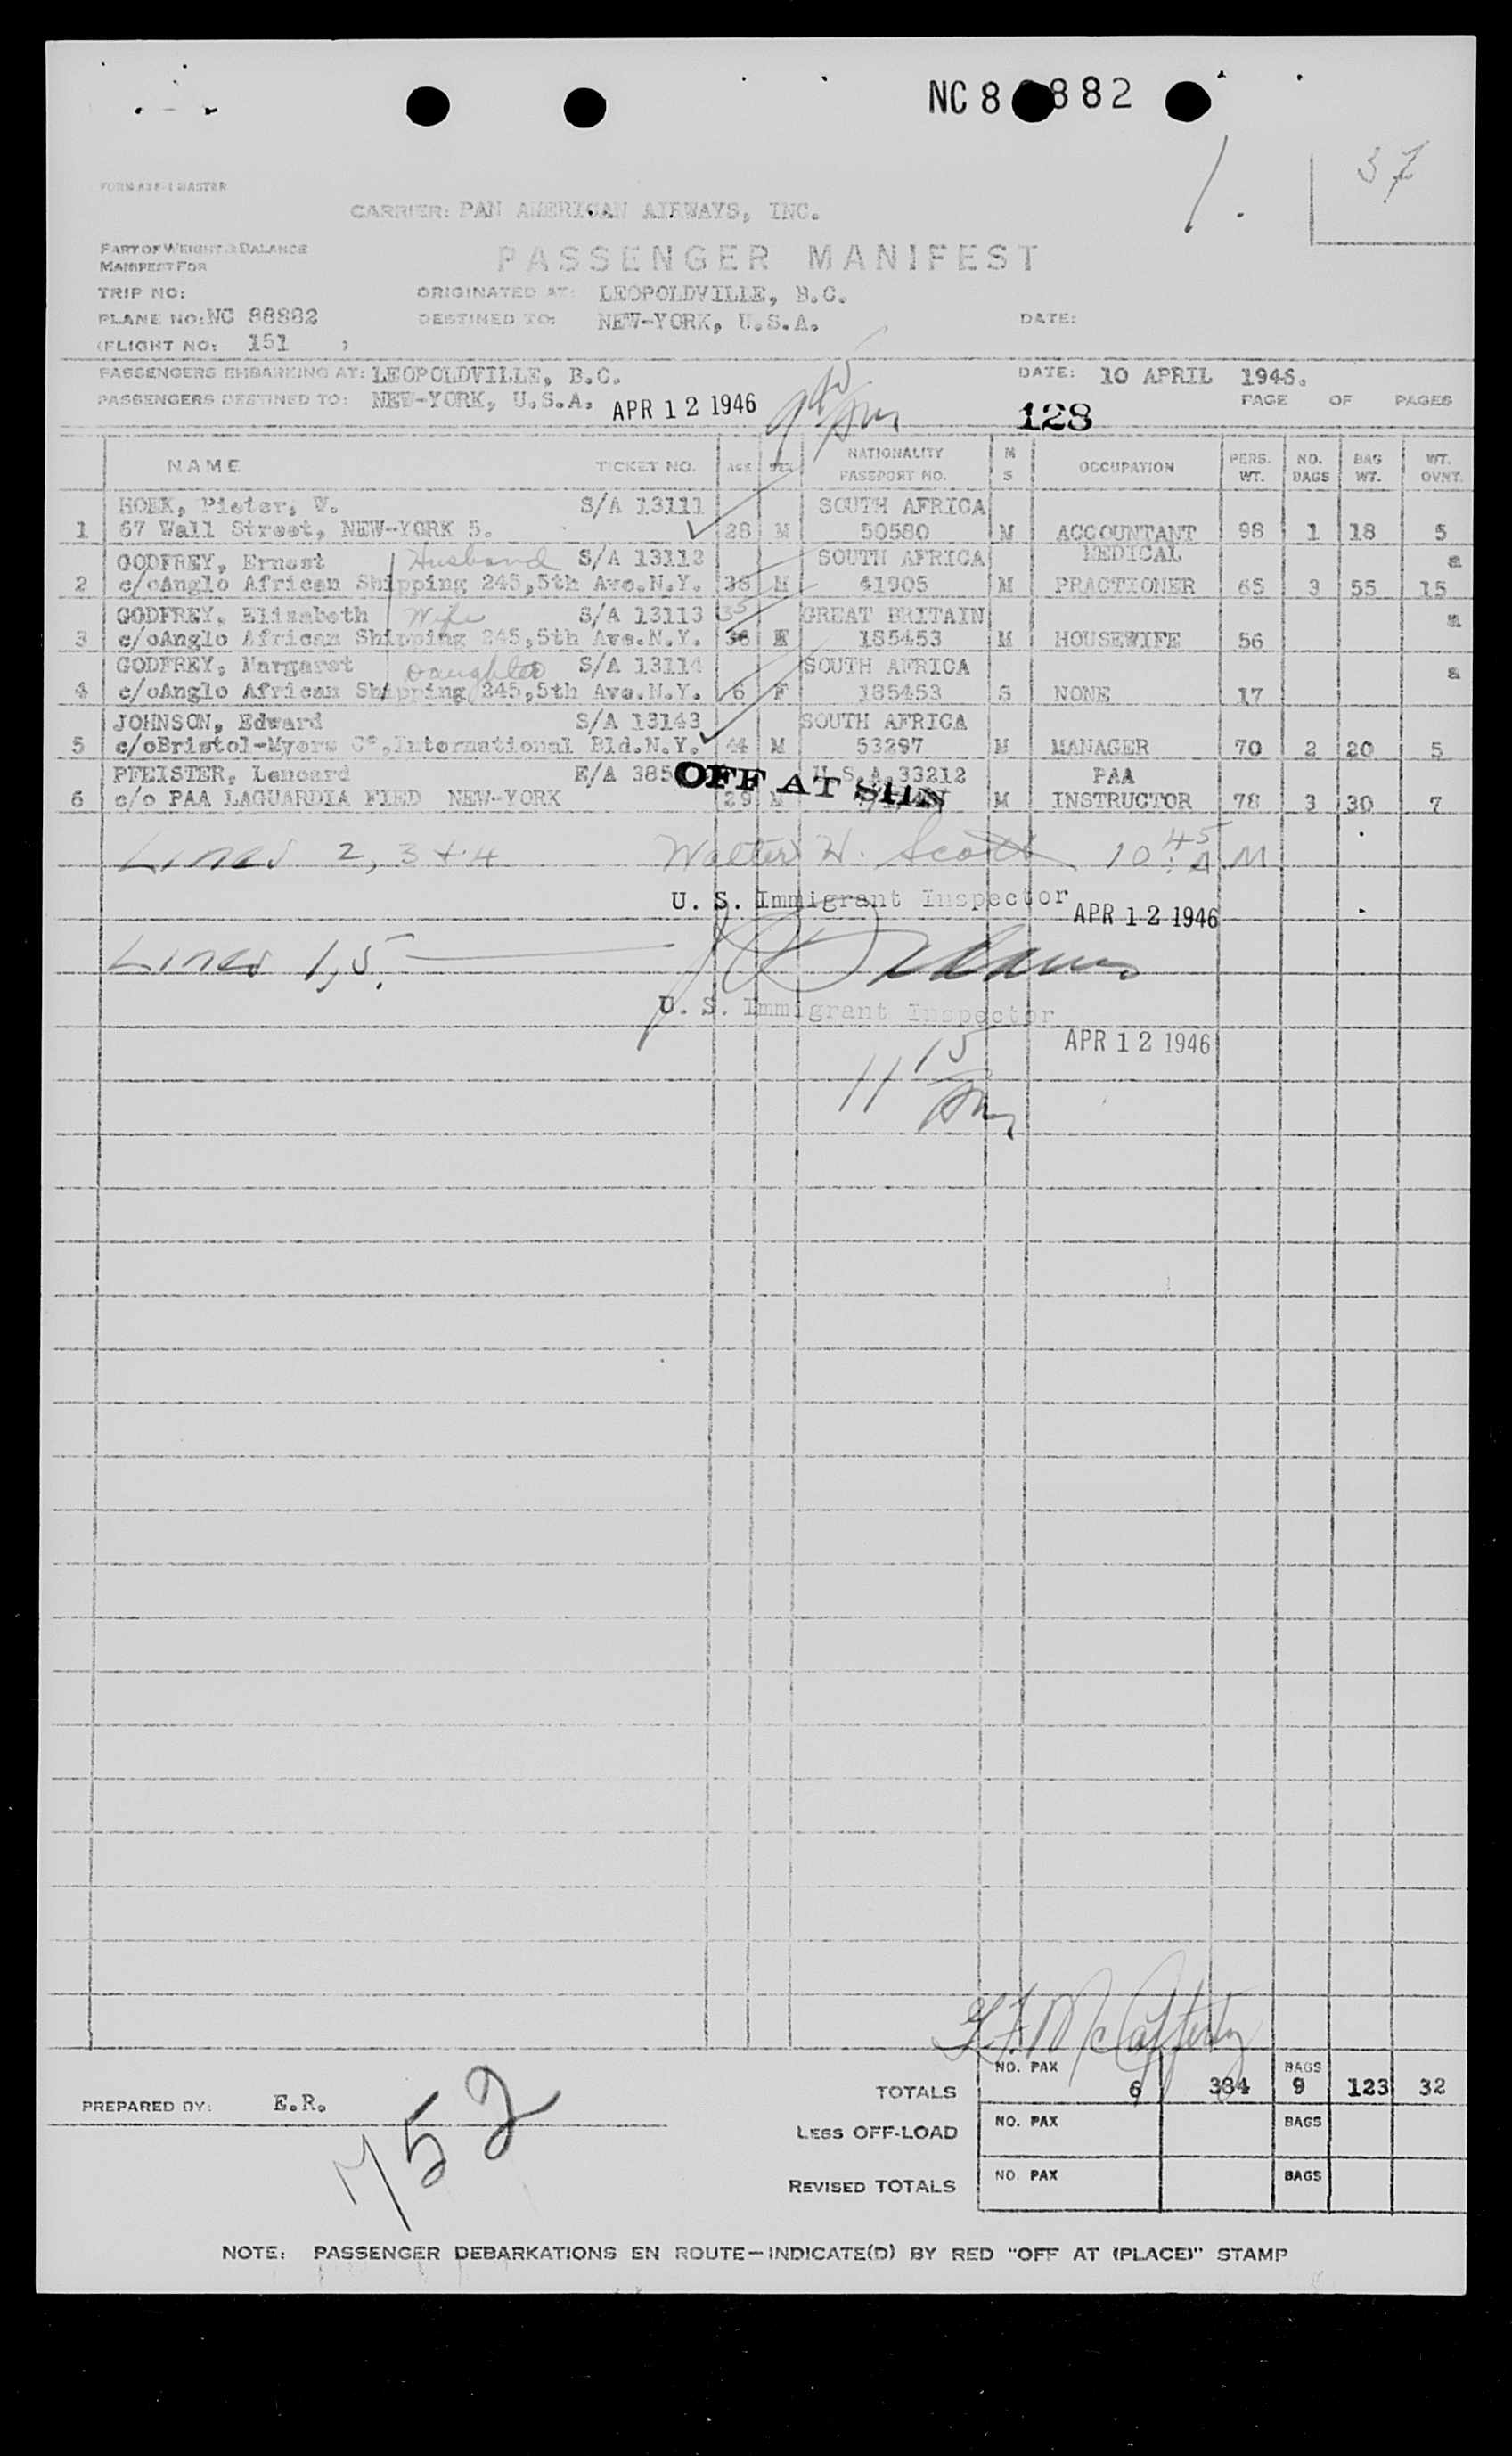 NC 8 882
1.
37
FORM #38-1 MASTER
CARRIER: PAN AMERICAN AIRWAYS, INC.
PART OF WEIGHT & BALANCE
MANIFEST FOR
PASSENGER MANIFEST
TRIP NO:
ORIGINATED AT: LEOPOLDVILLE, B.C.
PLANE NO: NC 88882
DESTINED TO: NEW-YORK, U.S.A.
DATE:
(FLIGHT NO: 151 )
PASSENGERS EMBARKING AT: LEOPOLDVILLE, B.C.
DATE: 10 APRIL 1946.
PASSENGERS DESTINED TO: NEW-YORK, U.S.A. APR 12 1946
128
PAGE OF PAGES
NAME TICKET NO. AGE SEX NATIONALITY PASSPORT NO. M S OCCUPATION PERS. WT. NO. BAGS BAG WT. WT. OVNT.
HOEK, Pieter, W. S/A 13111 SOUTH AFRICA
1 67 Wall Street, NEW-YORK 5. 28 M 50580 M ACCOUNTANT 98 1 18 5
GODFREY, Ernest Husband S/A 13112 SOUTH AFRICA MEDICAL a
2 c/oAnglo African Shipping 245,5th Ave.N.Y. 38 M 41905 M PRACTIONER 65 3 55 15
GODFREY, Elisabeth Wife S/A 13113 35 GREAT BRITAIN a
3 c/oAnglo African Shipping 245,5th Ave.N.Y. 36 F 185453 M HOUSEWIFE 56
GODFREY, Margaret Daughter S/A 13114 SOUTH AFRICA a
4 c/oAnglo African Shipping 245,5th Ave.N.Y. 6 F 185453 S NONE 17
JOHNSON, Edward S/A 13143 SOUTH AFRICA
5 c/oBristol-Myers C°,International Bld.N.Y. 44 M 53297 M MANAGER 70 2 20 5
PFEISTER, Lenoard E/A 385 OFF AT U.S.A. 33212 PAA
6 c/o PAA LAGUARDIA FIED NEW-YORK 29 M M INSTRUCTOR 78 3 30 7
Lines 2, 3 + 4 Walter H. Scott 10:45 AM
U. S. Immigrant Inspector
APR 12 1946
Lines 1, 5.
U. S. Immigrant Inspector
APR 12 1946
11 15 am
McCafferty
TOTALS NO. PAX 6 384 BAGS 9 123 32
PREPARED BY: E.R.
LESS OFF-LOAD NO. PAX BAGS
752
REVISED TOTALS NO. PAX BAGS
NOTE: PASSENGER DEBARKATIONS EN ROUTE—INDICATE(D) BY RED "OFF AT (PLACE)" STAMP